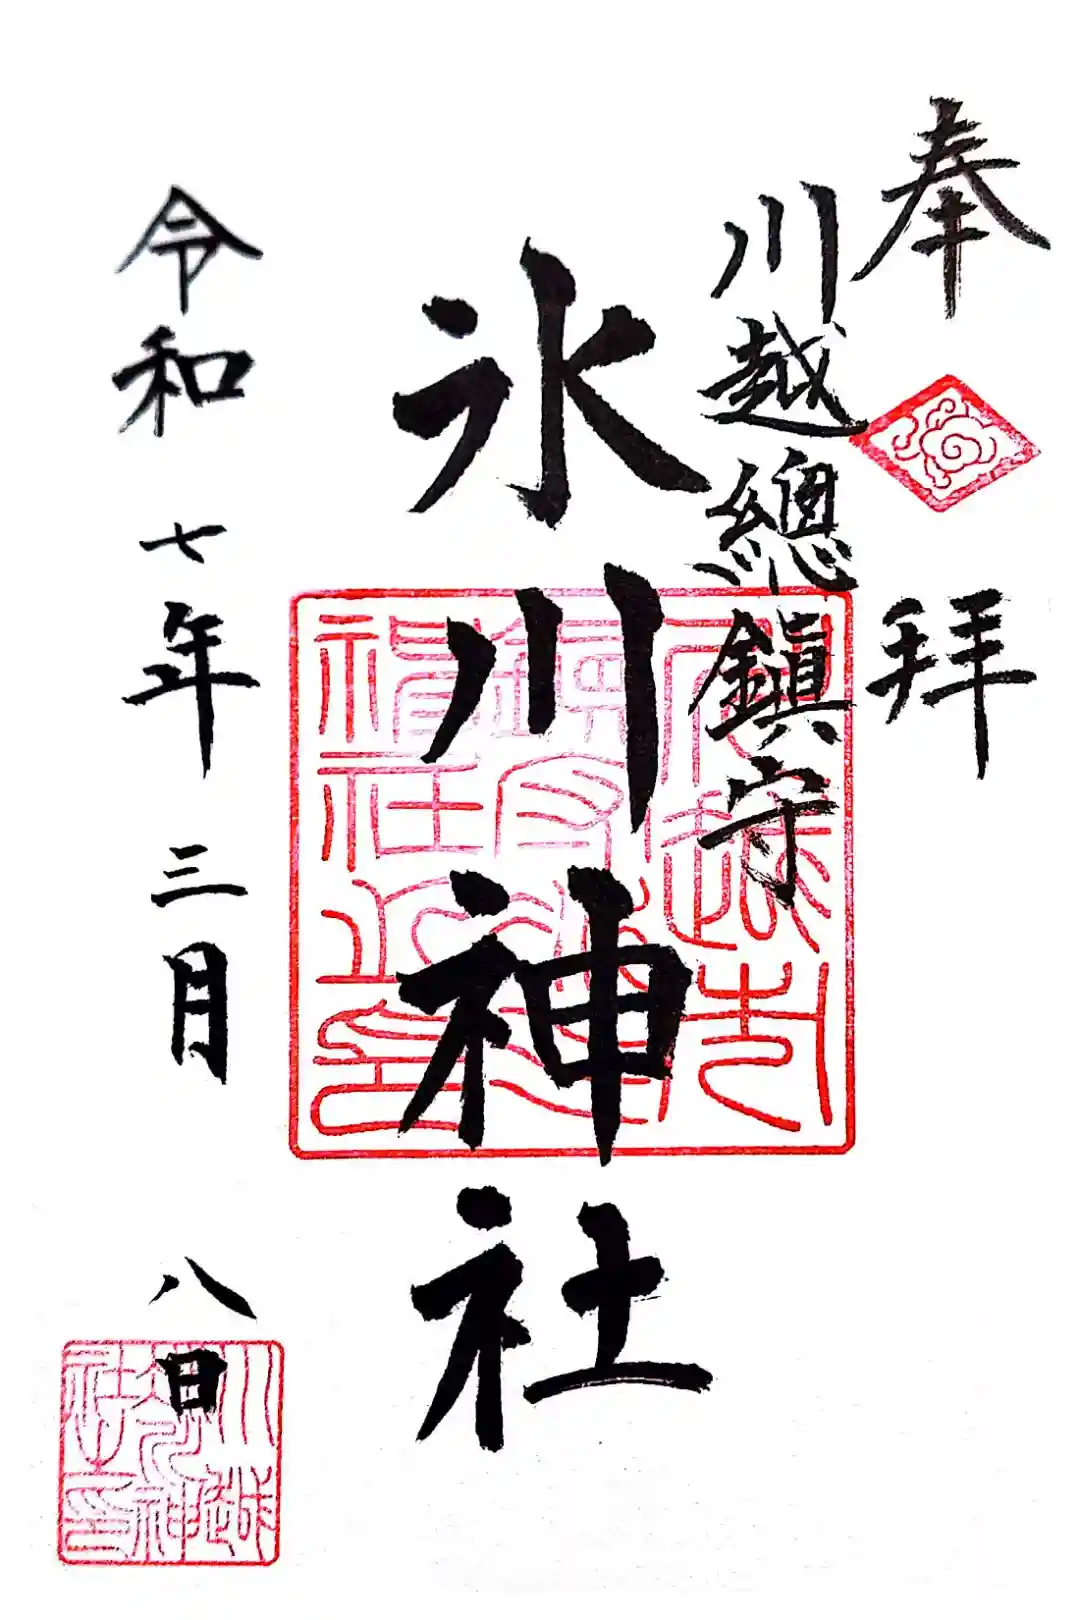 奉拜
川越總鎮守
氷川神社
令和七年三月八日